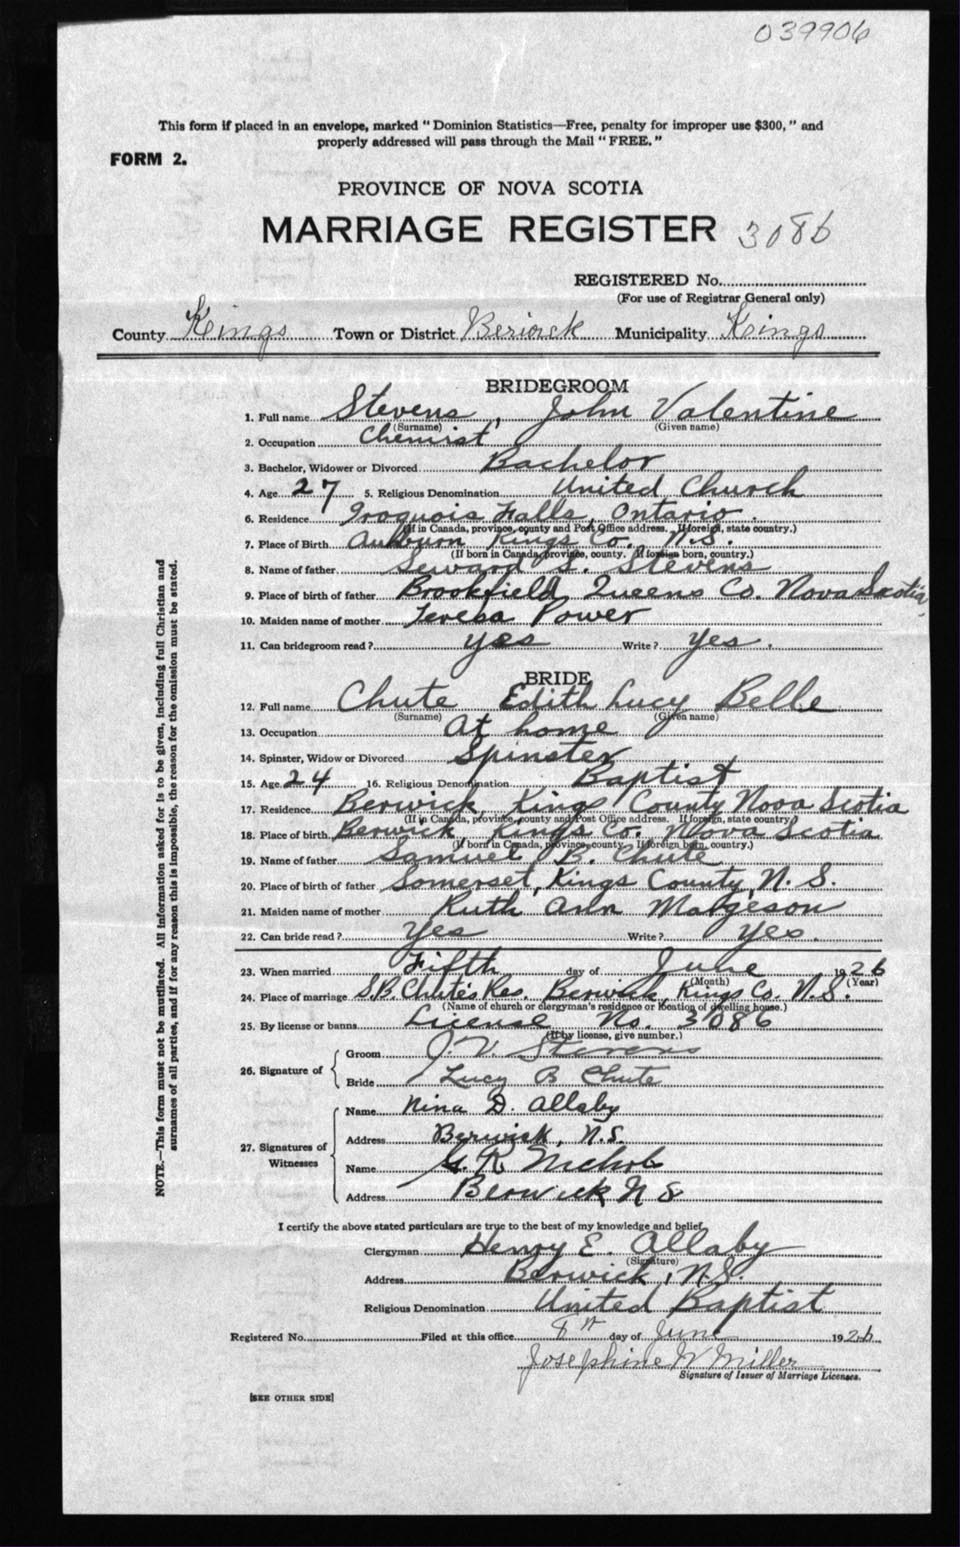 039906
This form if placed in an envelope, marked " Dominion Statistics—Free, penalty for improper use $300, " and
properly addressed will pass through the Mail " FREE. "
FORM 2.
PROVINCE OF NOVA SCOTIA
MARRIAGE REGISTER 3086
REGISTERED No.
(For use of Registrar General only)
County Kings Town or District Berwick Municipality Kings
BRIDEGROOM
1. Full name Stevens, John Valentine
(Surname) (Given name)
2. Occupation Chemist
3. Bachelor, Widower or Divorced Bachelor
4. Age 27 5. Religious Denomination United Church
6. Residence Iroquois Falls, Ontario.
(If in Canada, province, county and Post Office address. If foreign, state country.)
7. Place of Birth Auburn Kings Co. N.S.
(If born in Canada, province, county. If foreign born, country.)
8. Name of father Seward S. Stevens
9. Place of birth of father Brookfield Queens Co. Nova Scotia,
10. Maiden name of mother Teresa Power
11. Can bridegroom read? yes Write? yes.
BRIDE
12. Full name Chute Edith Lucy Belle
(Surname) (Given name)
13. Occupation At home
14. Spinster, Widow or Divorced Spinster
15. Age 24 16. Religious Denomination Baptist
17. Residence Berwick, Kings County Nova Scotia
(If in Canada, province, county and Post Office address. If foreign, state country.)
18. Place of birth Berwick, Kings Co. Nova Scotia
(If born in Canada, province, county. If foreign born, country.)
19. Name of father Samuel B. Chute
20. Place of birth of father Somerset, Kings County, N. S.
21. Maiden name of mother Ruth Ann Margeson
22. Can bride read? Yes Write? yes.
23. When married Fifth day of June 1926
(Month) (Year)
24. Place of marriage S.B. Chute's Res. Berwick, Kings Co. N.S.
(Name of church or clergyman's residence or location of dwelling house.)
25. By license or banns License No. 3086
(If by license, give number.)
26. Signature of
Groom J. V. Stevens
Bride Lucy B Chute
27. Signatures of Witnesses
Name Nina D. Allaby
Address Berwick, N.S.
Name G. R. Nichols
Address Berwick N S
I certify the above stated particulars are true to the best of my knowledge and belief.
Clergyman Henry E. Allaby
(Signature)
Address Berwick, N.S.
Religious Denomination United Baptist
Registered No. Filed at this office 8th day of June 1926
Josephine W Miller
Signature of Issuer of Marriage Licenses.
[SEE OTHER SIDE]
NOTE.—This form must not be mutilated. All information asked for is to be given, including full Christian and
surnames of all parties, and if for any reason this is impossible, the reason for the omission must be stated.